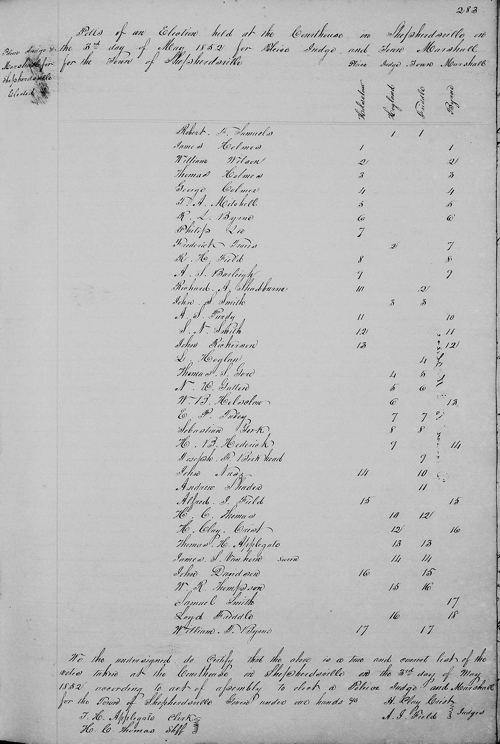 283
Polls of an Election held at the Courthouse in Shepherdsville on
the 3rd day of May 1852 for Police Judge and Town Marshall
for the Town of Shepherdsville Police Judge Town Marshall
Police Judge &
Marshall for
Shepherdsville
Elected
Hoglan Froddle Byrne
Robert F. Samuels 1 1
James Holmes 1 1
William Wilson 2 2
Thomas Holmes 3 3
George Colmer 4 4
T. A. Mitchell 5 5
R. L. Byrne 6 6
Philip Lee 7
Frederick 2 7
R. H. Field 8 8
A. S. Burleigh 9 9
Richard A. Shadburn 10 2
John S. Smith 3 3
A. S. Purdy 11 10
S. N. Smith 12 11
John Richerson 13 12
L. Hoglan 4
Thomas S. Gore 4 5
N. C. 5 6
W. B. 6 13
E. P. 7 7
Sebastian York 8 8
H. B. Hederick 9 14
Joseph F. Birkhead 9
John 14 10
Andrew Shader 11
Alfred J. Field 15 15
H. C. Thomas 10 12
H. Clay Crist 12 16
Thomas H. Applegate 13 13
James S. sworn 14 14
John Davidson 16 15
W. R. Thompson 15 16
Samuel Smith 17
Loyd Froddle 16 18
William F. 17 17
We the undersigned do Certify that the above is a true and correct list of the
votes taken at the Courthouse in Shepherdsville on the 3rd day of May
1852 according to act of assembly to elect a Police Judge and Marshall
for the Town of Shepherdsville Given under our hands
H. Clay Crist
A. J. Field Judges
T. H. Applegate clerk
H. C. Thomas Shff